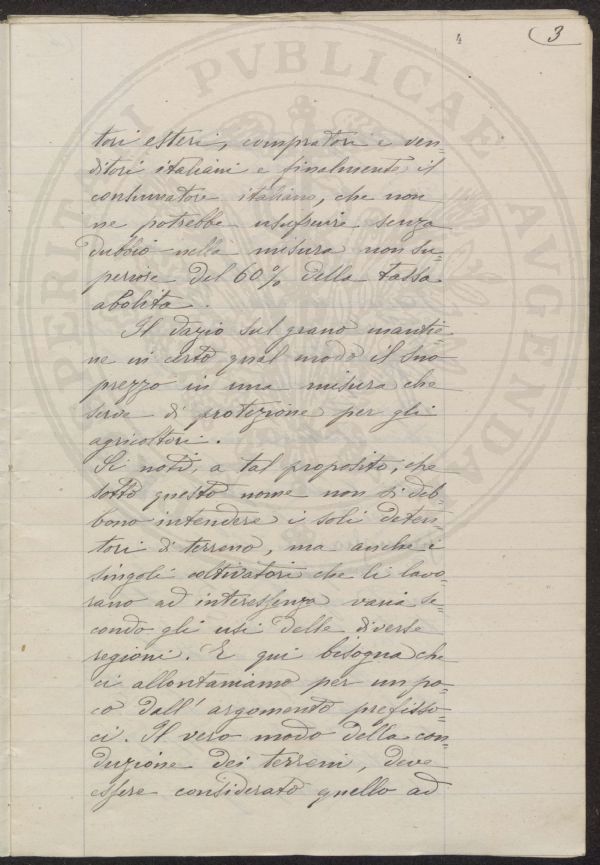 4
3
tori esteri, compratori e ven=
ditori italiani e finalmente il
consumatore italiano, che non
ne potrebbe usufruire senza
dubbio nella misura non su=
periore del 60% della tassa
abolita.
Il dazio sul grano mantie=
ne in certo qual modo il suo
prezzo in una misura che
serve di protezione per gli
agricoltori.
Si noti, a tal proposito, che
sotto questo nome non si deb=
bono intendere i soli deten=
tori di terreno, ma anche i
singoli coltivatori che li lavo=
rano ad interessenza varia se=
condo gli usi delle diverse
regioni. E qui bisogna che
ci allontaniamo per un po=
co dall' argomento prefisso=
ci. Il vero modo della con=
duzione dei terreni, deve
essere considerato quello ad
PERITATI PVBLICAE AVGENDAE